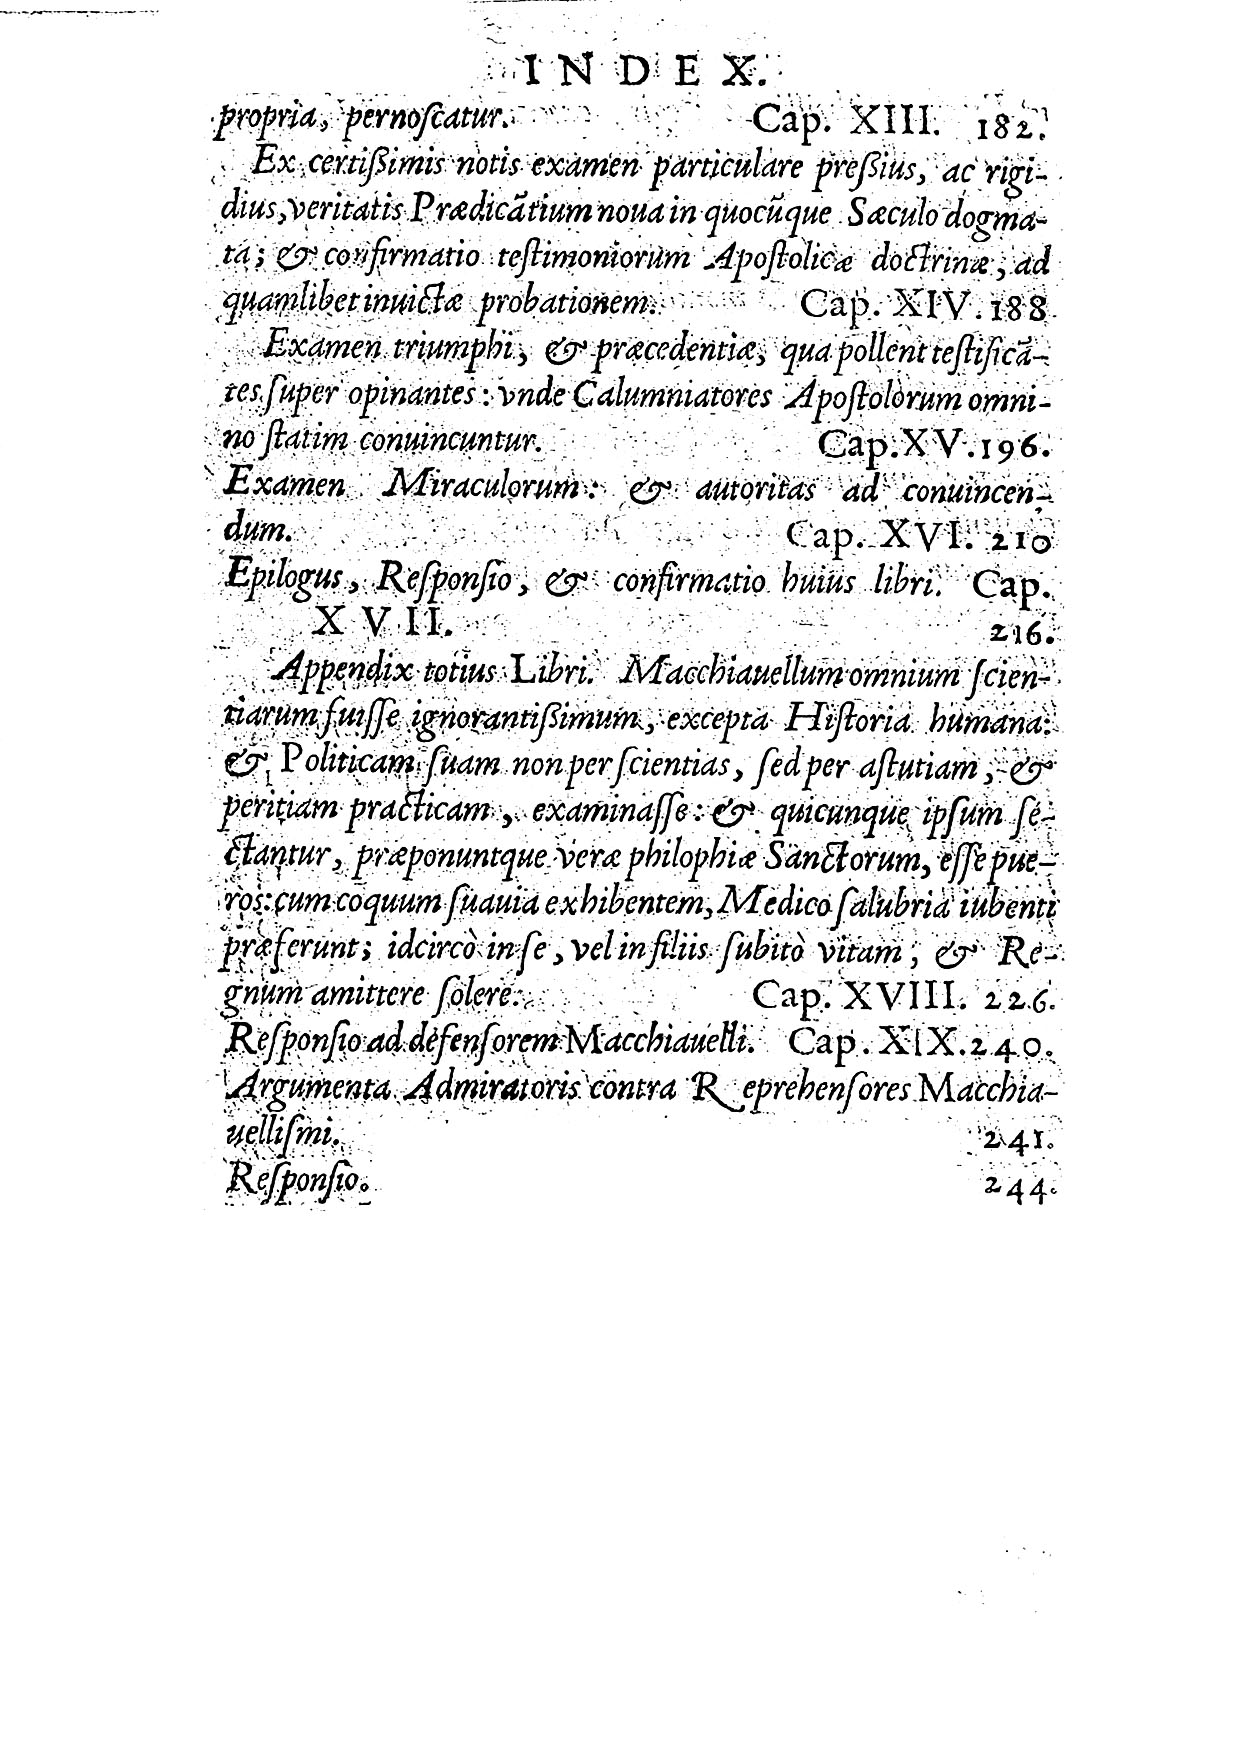 INDEX.
propria, pernoſcatur. Cap. XIII. 182.
Ex certißimis notis examen particulare preßius, ac rigi-
dius, veritatis Prædicãtium noua in quocũque Sæculo dogma-
ta; & confirmatio teſtimoniorum Apoſtolicæ doctrinæ, ad
quamlibet inuictæ probationem. Cap. XIV. 188
Examen triumphi, & præcedentiæ, qua pollent teſtificã-
tes ſuper opinantes: vnde Calumniatores Apoſtolorum omni-
no ſtatim conuincuntur. Cap. XV. 196.
Examen Miraculorum: & autoritas ad conuincen-
dum. Cap. XVI. 210
Epilogus, Reſponſio, & confirmatio huius libri. Cap.
XVII. 216.
Appendix totius Libri. Macchiauellum omnium ſcien-
tiarum fuiſſe ignorantißimum, excepta Hiſtoria humana:
& Politicam ſuam non per ſcientias, ſed per aſtutiam, &
peritiam practicam, examinaſſe: & quicunque ipſum ſe-
ctantur, præponuntque veræ philophiæ Sanctorum, eſſe pue-
ros: cum coquum ſuauia exhibentem, Medico ſalubria iubenti
præferunt; idcircò in ſe, vel in filiis ſubitò vitam, & Re-
gnum amittere ſolere. Cap. XVIII. 226.
Reſponſio ad defenſorem Macchiauelli. Cap. XIX. 240.
Argumenta Admiratoris contra Reprehenſores Macchia-
uelliſmi. 241.
Reſponſio. 244.